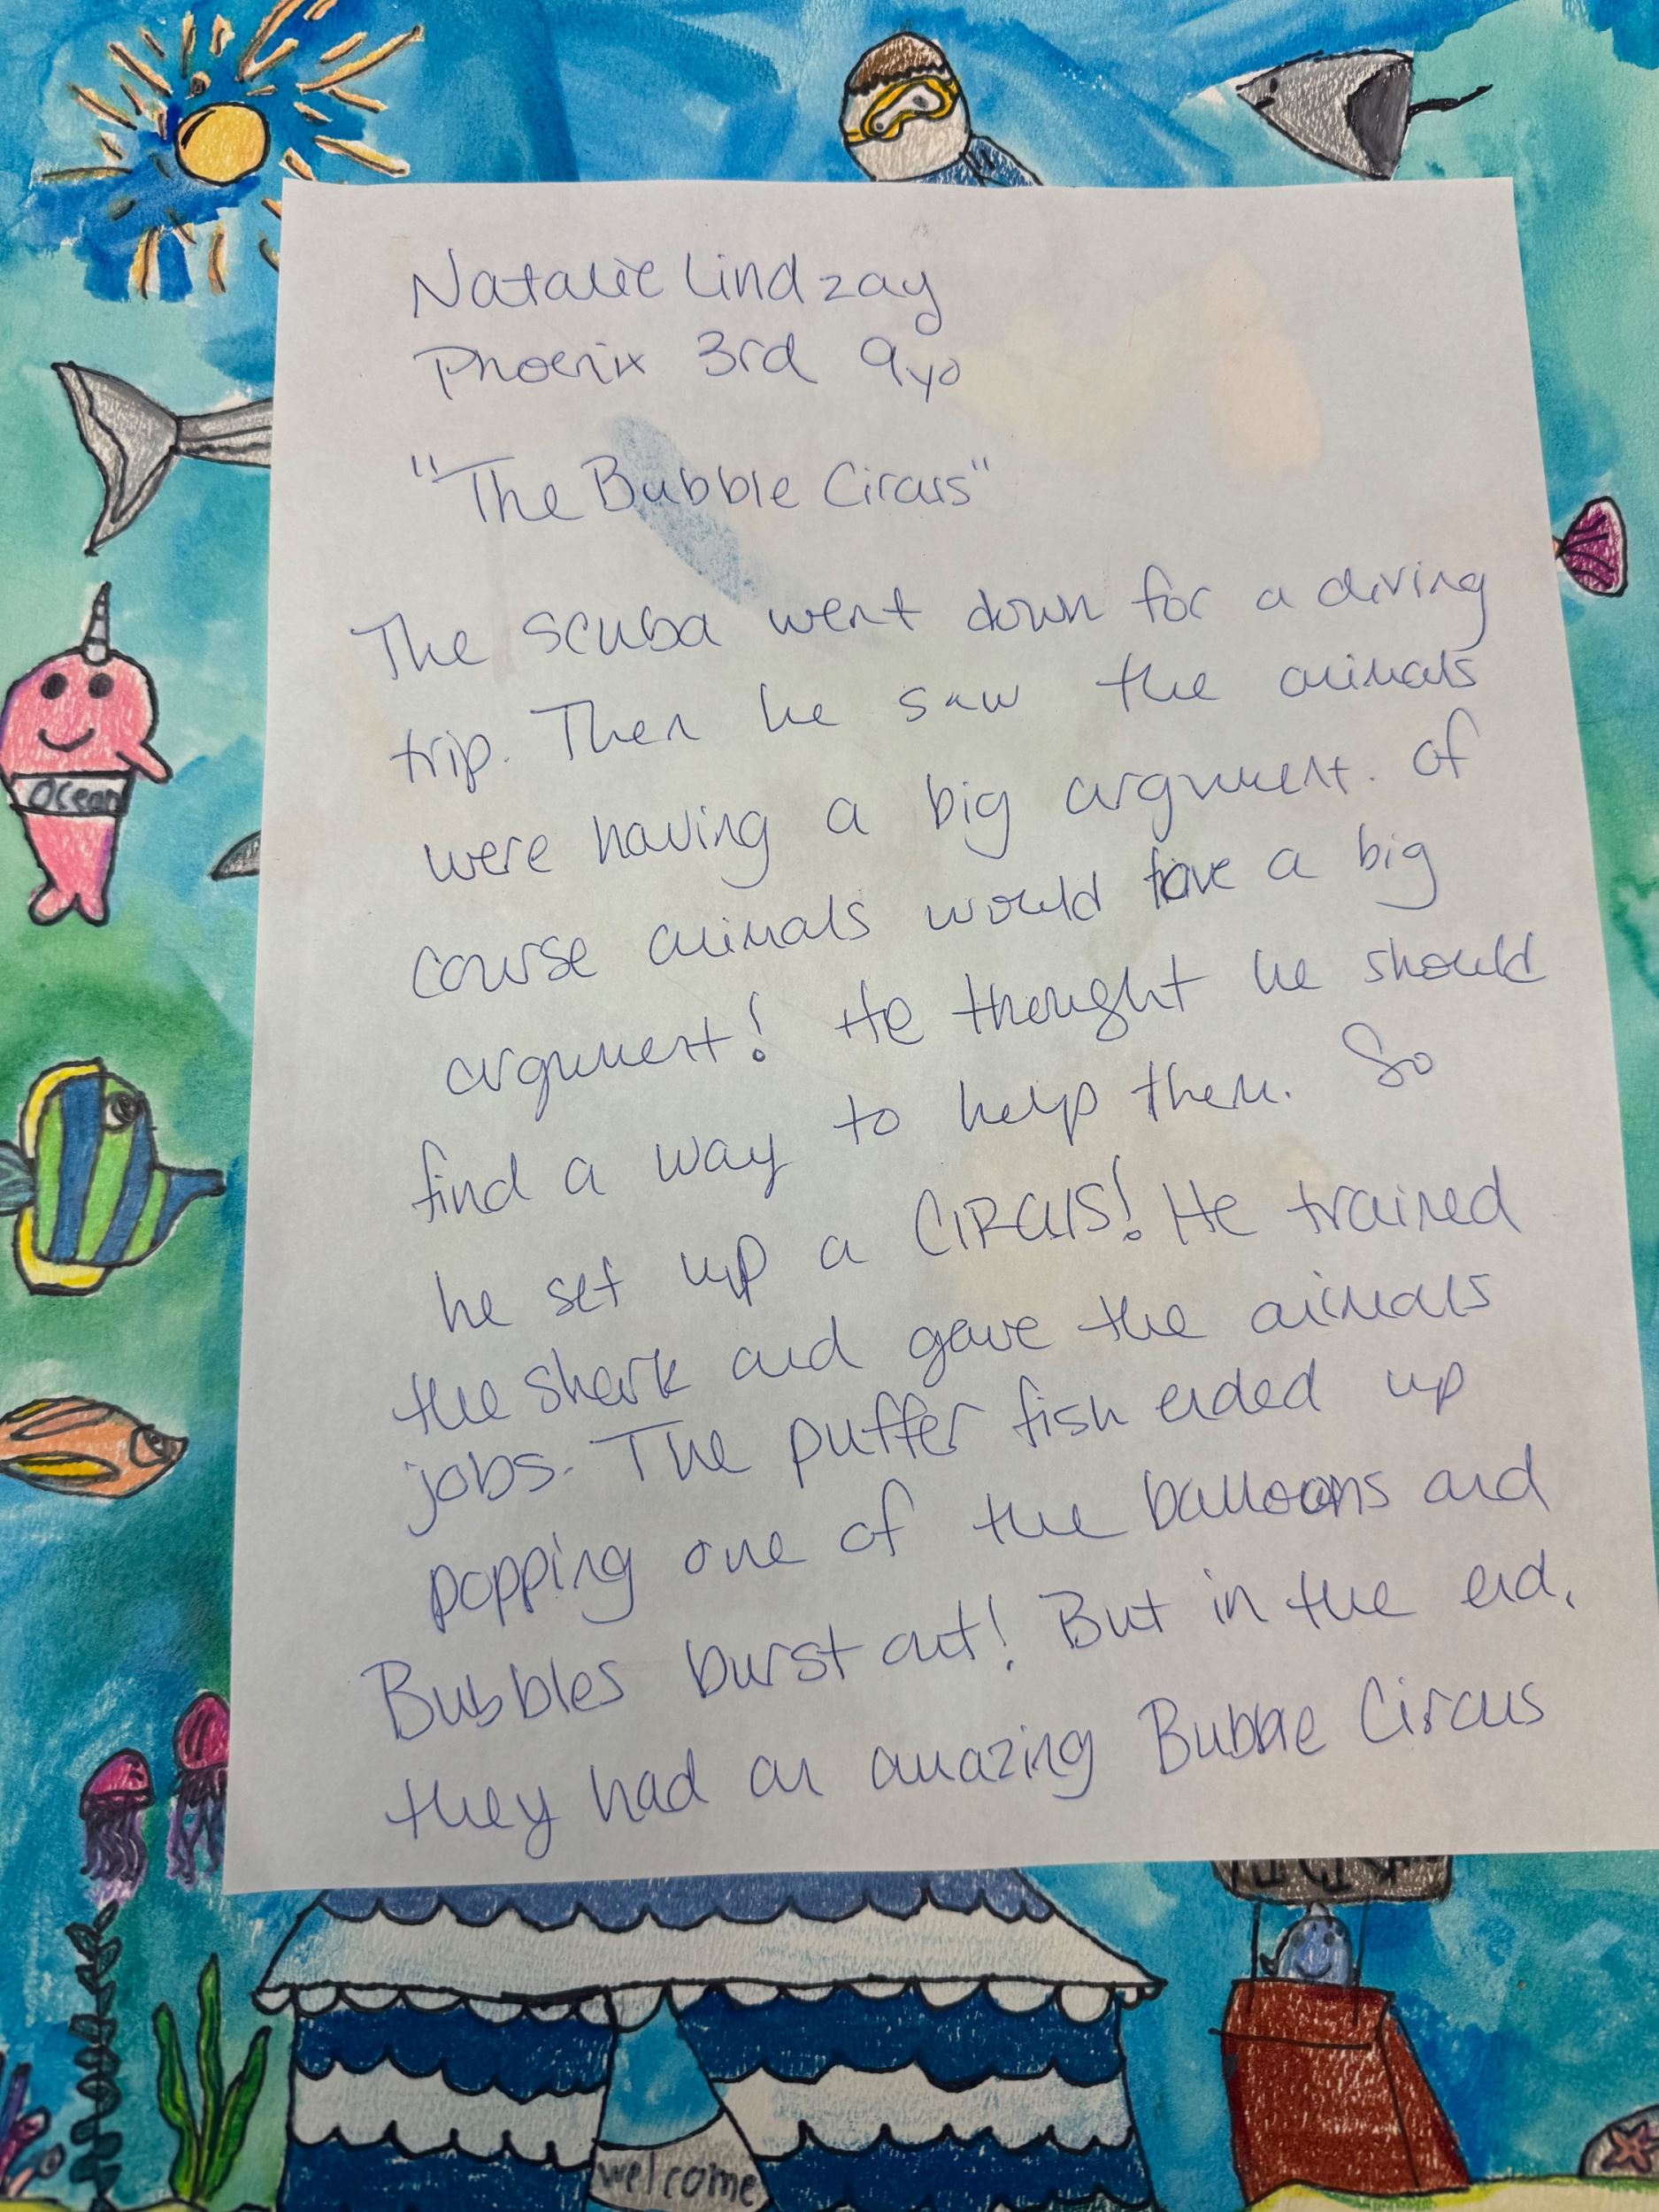 Natalie Lindzay
Phoenix 3rd 9yo
"The Bubble Circus"
The scuba went down for a diving
trip. Then he saw the animals
were having a big argument. Of
course animals would have a big
argument! He thought he should
find a way to help them. So
he set up a CIRCUS! He trained
the shark and gave the animals
jobs. The puffer fish ended up
popping one of the balloons and
Bubbles burst out! But in the end,
they had an amazing Bubble Circus
Ocean
welcome